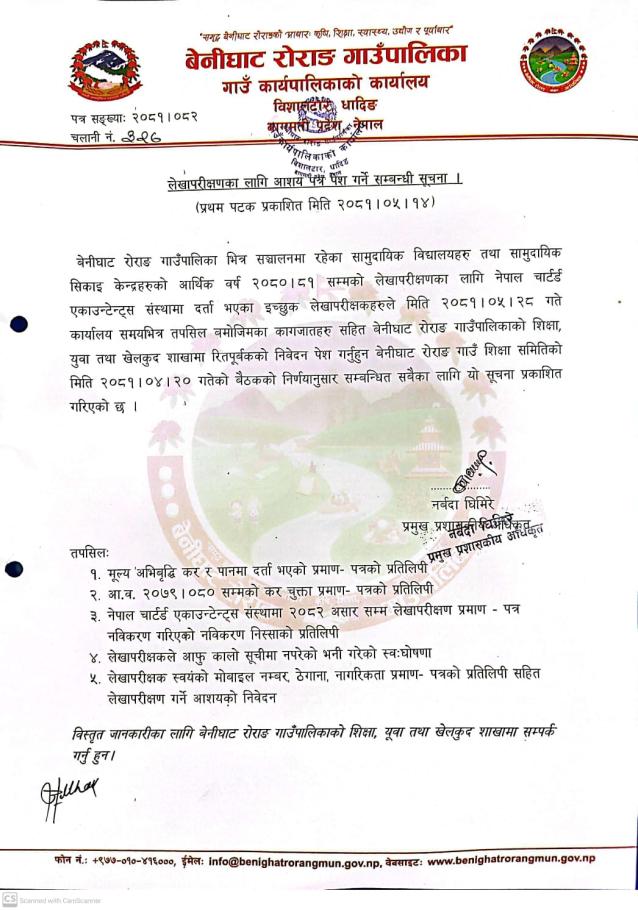 "समृद्ध बेनीघाट रोराङको आधारः कृषि, शिक्षा, स्वास्थ्य, उद्योग र पूर्वाधार"
बेनीघाट रोराङ गाउँपालिका
गाउँ कार्यपालिकाको कार्यालय
विशालटार, धादिङ
बागमती प्रदेश, नेपाल
पत्र सङ्ख्याः २०८१।०८२
चलानी नं. ३२६
लेखापरीक्षणका लागि आशय पत्र पेश गर्ने सम्बन्धी सूचना ।
(प्रथम पटक प्रकाशित मिति २०८१।०५।१४)
बेनीघाट रोराङ गाउँपालिका भित्र सञ्चालनमा रहेका सामुदायिक विद्यालयहरु तथा सामुदायिक
सिकाइ केन्द्रहरुको आर्थिक वर्ष २०८०।८१ सम्मको लेखापरीक्षणका लागि नेपाल चार्टर्ड
एकाउन्टेन्ट्स संस्थामा दर्ता भएका इच्छुक लेखापरीक्षकहरुले मिति २०८१।०५।२८ गते
कार्यालय समयभित्र तपसिल बमोजिमका कागजातहरु सहित बेनीघाट रोराङ गाउँपालिकाको शिक्षा,
युवा तथा खेलकुद शाखामा रितपूर्वकको निवेदन पेश गर्नुहुन बेनीघाट रोराङ गाउँ शिक्षा समितिको
मिति २०८१।०४।२० गतेको बैठकको निर्णयानुसार सम्बन्धित सबैका लागि यो सूचना प्रकाशित
गरिएको छ ।
नर्बदा घिमिरे
प्रमुख प्रशासकीय अधिकृत
नर्बदा घिमिरे
प्रमुख प्रशासकीय अधिकृत
तपसिलः
१. मूल्य अभिवृद्धि कर र पानमा दर्ता भएको प्रमाण- पत्रको प्रतिलिपी
२. आ.व. २०७९।०८० सम्मको कर चुक्ता प्रमाण- पत्रको प्रतिलिपी
३. नेपाल चार्टर्ड एकाउन्टेन्ट्स संस्थामा २०८२ असार सम्म लेखापरीक्षण प्रमाण - पत्र
नविकरण गरिएको नविकरण निस्साको प्रतिलिपी
४. लेखापरीक्षकले आफु कालो सूचीमा नपरेको भनी गरेको स्वःघोषणा
५. लेखापरीक्षक स्वयंको मोबाइल नम्बर, ठेगाना, नागरिकता प्रमाण- पत्रको प्रतिलिपी सहित
लेखापरीक्षण गर्ने आशयको निवेदन
विस्तृत जानकारीका लागि बेनीघाट रोराङ गाउँपालिकाको शिक्षा, युवा तथा खेलकुद शाखामा सम्पर्क
गर्नु हुन।
फोन नं.: +९७७-०१०-४१६०००, ईमेलः info@benighatrorangmun.gov.np, वेबसाइटः www.benighatrorangmun.gov.np
CS Scanned with CamScanner